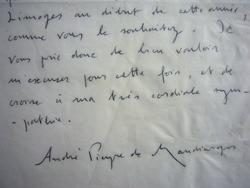 Limoges au début de cette année,
comme vous le souhaitez. Je
vous prie donc de bien vouloir
m'excuser pour cette fois, et de
croire à ma très cordiale sym-
-pathie.
André Pieyre de Mandiargues